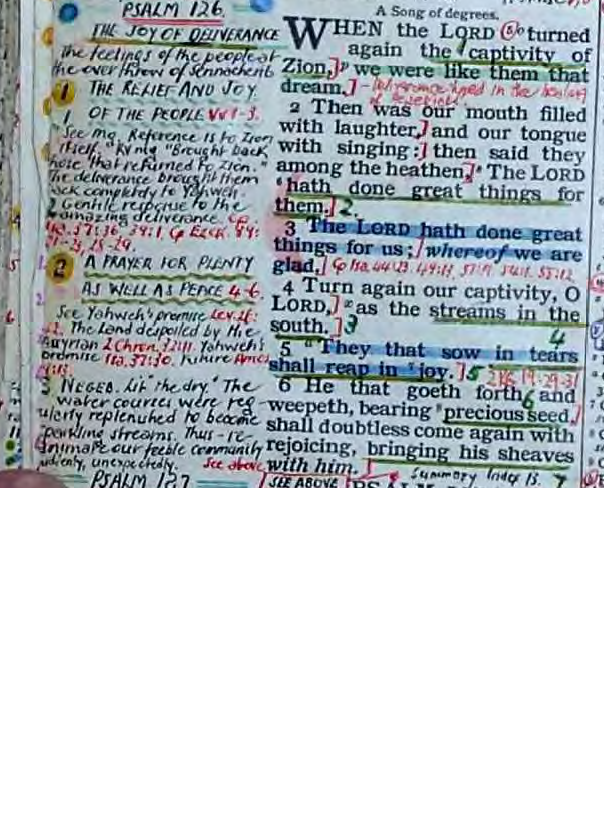 PSALM 126.
THE JOY OF DELIVERANCE
The feelings of the people at
the overthrow of Sennacherib
1 THE RELIEF AND JOY.
OF THE PEOPLE VV 1-3.
1 "See mg. Reference is to Zion
itself," RV mg "Brought back
those that returned to Zion."
The deliverance brought them
back completely to Yahweh.
2 Gentile response to the
amazing deliverance. Cp
2 A PRAYER FOR PLENTY
AS WELL AS PEACE 4-6.
See Yahweh's promise Lev. 26:
The Land despoiled by the
Assyrian 2 Chron. 32:11. Yahweh's
promise Isa. 37:30. Future Amos
3 NEGEB. Lit "the dry." The
water courses were reg-
ularly replenished to become
sparkling streams. Thus - re-
animate our feeble community
suddenly, unexpectedly. See above
PSALM 127
A Song of degrees.
WHEN the LORD turned
again the captivity of
Zion, we were like them that
dream.
2 Then was our mouth filled
with laughter, and our tongue
with singing: then said they
among the heathen, The LORD
hath done great things for
them. 2.
3 The LORD hath done great
things for us; whereof we are
glad. Cp Isa. 44:23, 49:11,
4 Turn again our captivity, O
LORD, as the streams in the
south. 3 4
5 They that sow in tears
shall reap in joy. 5 2 Kg 19:29-31
6 He that goeth forth 6 and
weepeth, bearing precious seed,
shall doubtless come again with
rejoicing, bringing his sheaves
with him.
SEE ABOVE Summary Index 13. 7